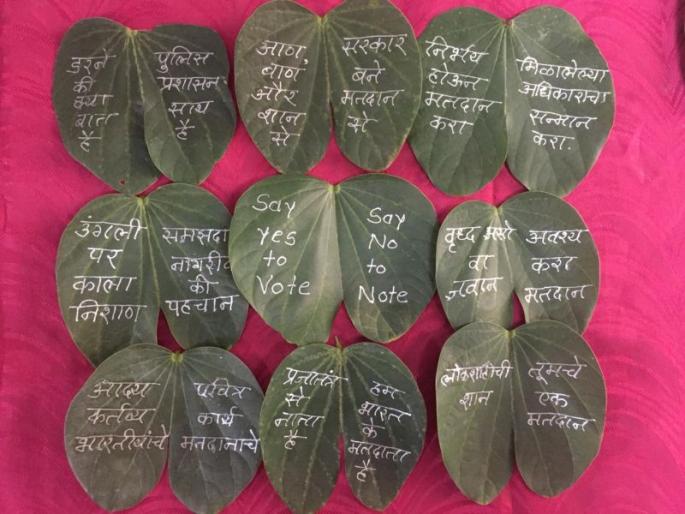 डरने
की
क्या
बात
है
पुलिस
प्रशासन
साथ
है
आण,
बाण
और
शान
से
सरकार
बने
मतदान
से
निर्भय
होऊन
मतदान
करा
मिळालेल्या
अधिकाराचा
सन्मान
करा.
उंगली
पर
काला
निशाण
समझदा
नागरीक
की
पहचान
Say
yes
to
Vote
Say
No
to
Note
वृध्द असो
वा
जवान
अवश्य
करा
मतदान
आद्य
कर्तव्य
भारतीयांचे
पवित्र
कार्य
मतदानाचे
प्रजातंत्र
से
नाता
है
हम
भारत
के
मतदाता
है
लोकशाहीची
शान
तूमचे
एक
मतदान